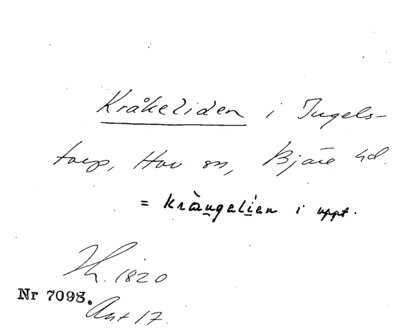 Kråkeliden i Ingels-
torp, Hov sn, Bjäre hd.
= kräŋgelien i uppt.
1820
Nr 7098.
Ant 17.